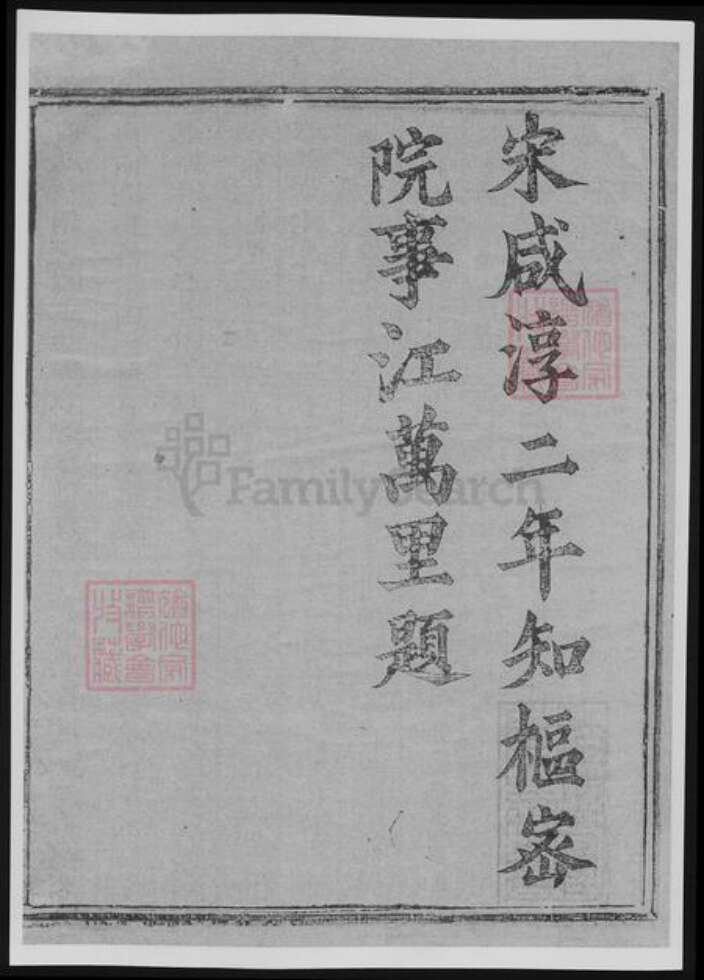 宋咸淳二年知樞宻
院事江萬里題
FamilySearch